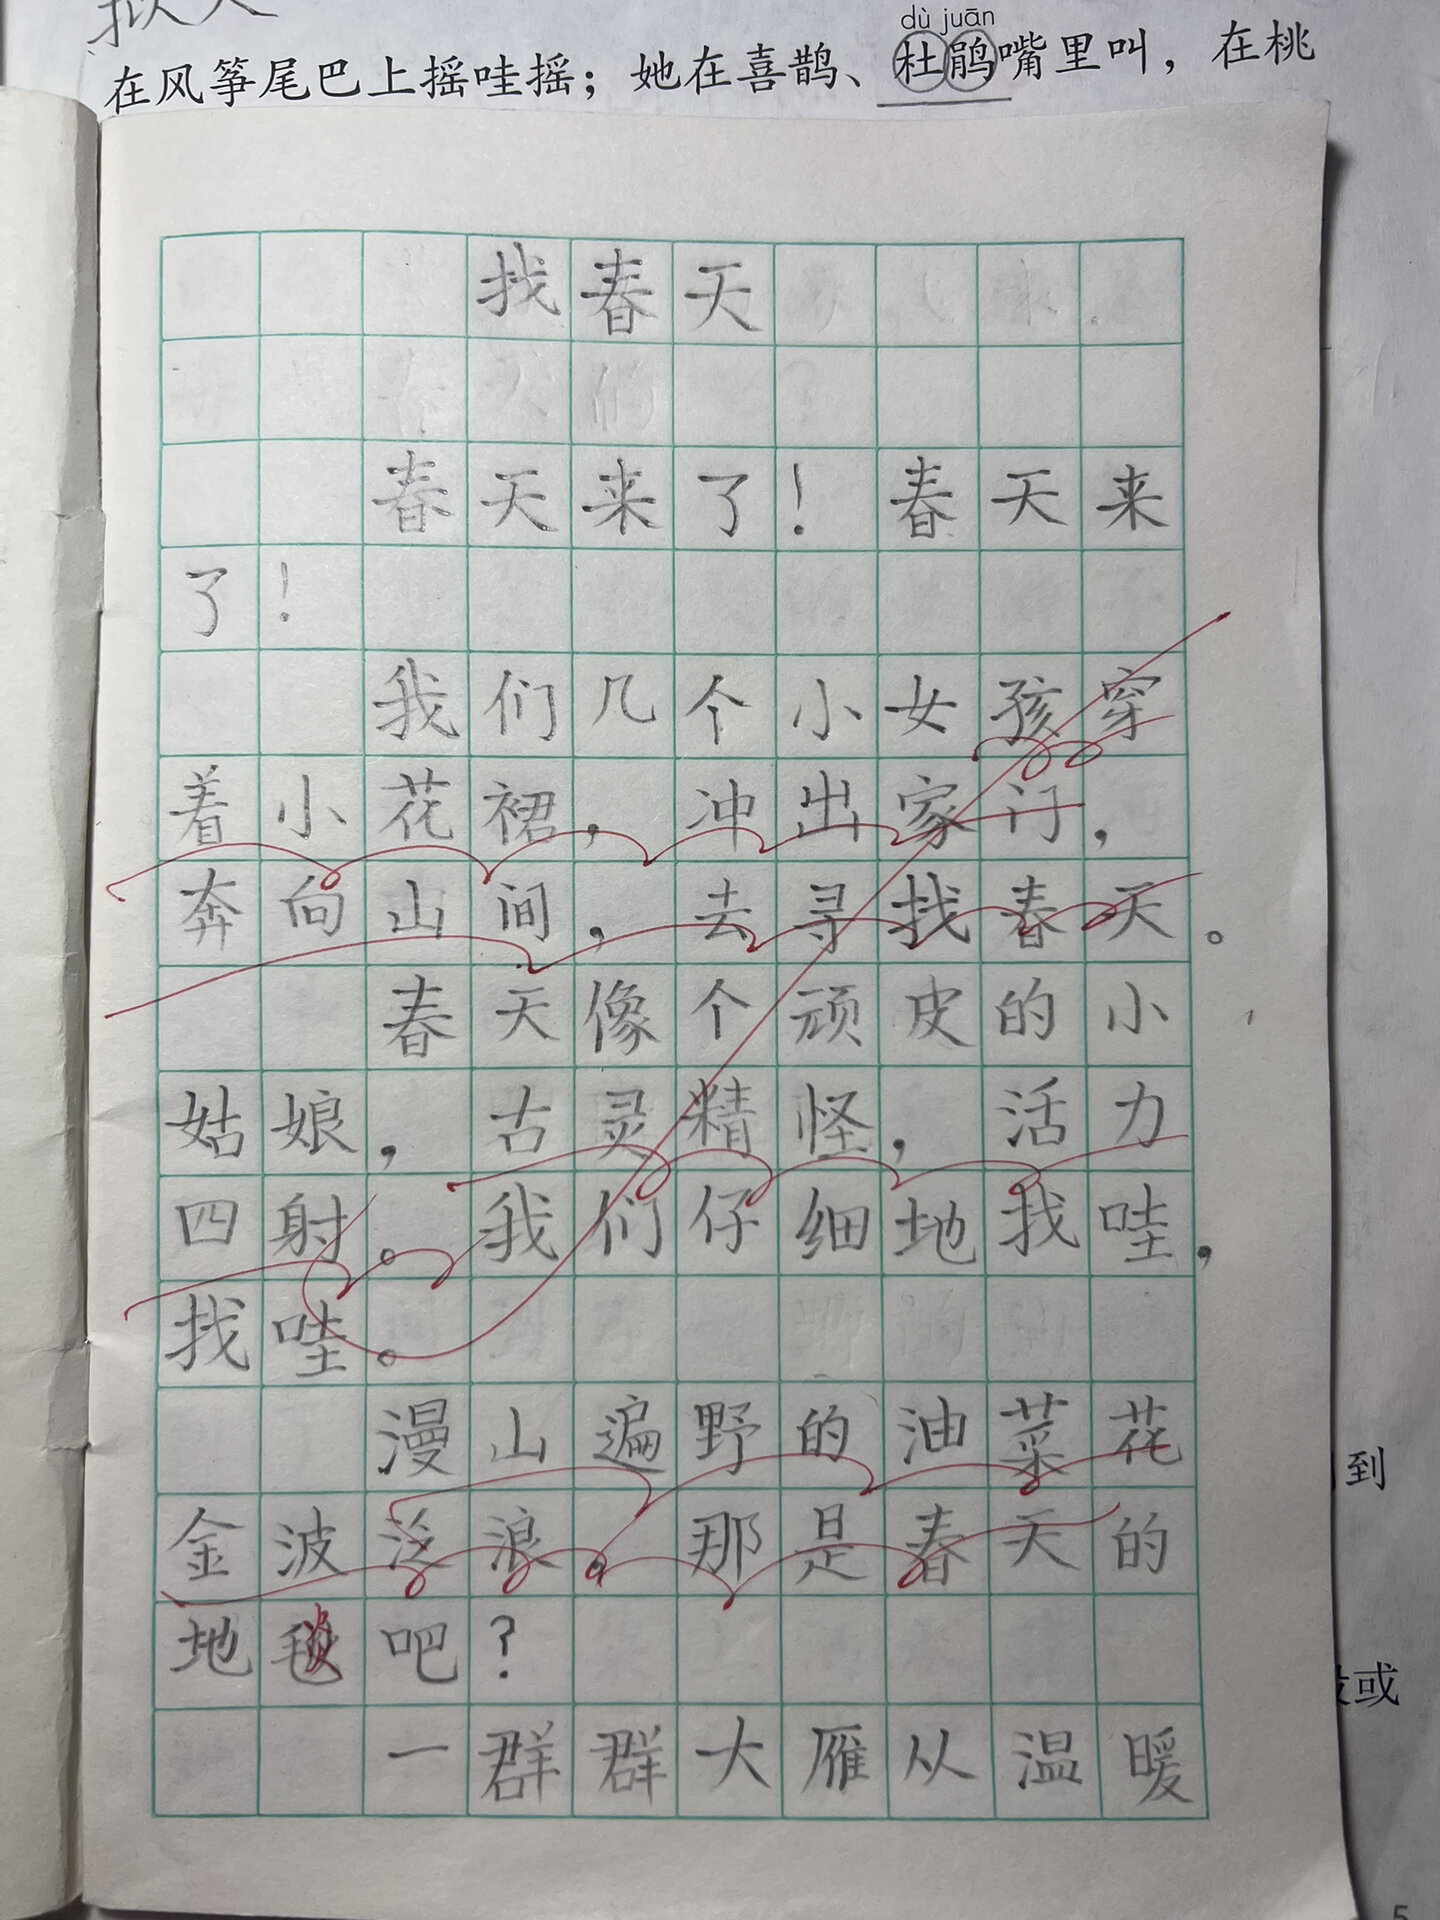 拟人
dù juān
在风筝尾巴上摇哇摇；她在喜鹊、杜鹃嘴里叫，在桃
找春天
春天来了！春天来
了！
我们几个小女孩穿
着小花裙，冲出家门，
奔向山间，去寻找春天。
春天像个顽皮的小
姑娘，古灵精怪，活力
四射。我们仔细地找哇，
找哇。
漫山遍野的油菜花
金波泛浪，那是春天的
地毯吧？
一群群大雁从温暖
到
或
5